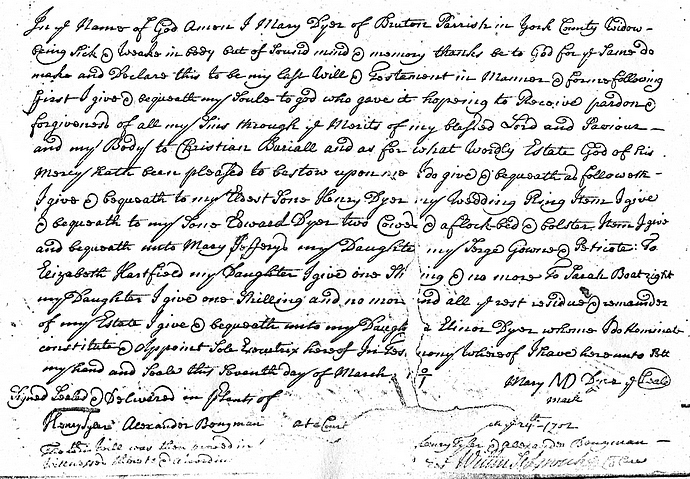 In ye Name of God Amen I Mary Dyer of Bruton Parrish in York County Widow
being Sick & Weake in body but of Sound mind & memory thanks be to God for ye Same do
make and Declare this to be my last Will & Testament in Manner & forme following
first I give & bequeath my Soule to god who gave it hopeing to Receive pardon &
forgiveness of all my Sins through ye Merits of my blessed Lord and Saviour
and my Body to Christian Buriall and as for what Wordly Estate God of his
Mercy hath been pleased to bestow upon me I do give & bequeath as followeth
I give & bequeath to my Eldest Sone Henry Dyer my Wedding Ring Item I give
& bequeath to my Sone Edward Dyer two Cowes & a flock bed & bolster Item I give
and bequeath unto Mary Jefferys my Daughte my Serge Gowne & Peticote To
Elizabeth Hartfield my Daughter I give one Sh ing & no more To Sarah Boatright
my Daughter I give one Shilling and no mor nd all ye rest residue & remainder
of my Estate I give & bequeath unto my Daugh Elinor Dyer whome I do Nominate
constitute & Appoint Sole Executrix hereof In Tes mony Whereof I have hereunto Sett
my hand and Seale this Seventh day of March
Mary M D Dyer ye Seale
mark
Signed Sealed & Delivered in
Henry Tyler Alexander Bonyman at a Court 24th 1702
This Will was then proved in Henry Tyler & Alexander Bonyman
Witnesses thereto &